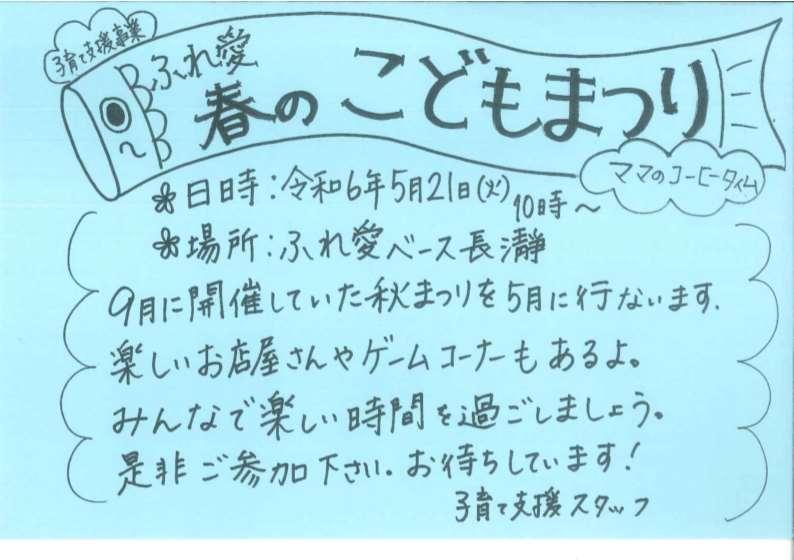 子育て支援事業
ふれ愛
春のこどもまつり
ママのコーヒータイム
❀日時:令和6年5月21日(火)10時～
❀場所:ふれ愛ベース長瀞
9月に開催していた秋まつりを5月に行ないます.
楽しいお店屋さんやゲームコーナーもあるよ。
みんなで楽しい時間を過ごしましょう。
是非ご参加下さい。お待ちしています!
子育て支援スタッフ